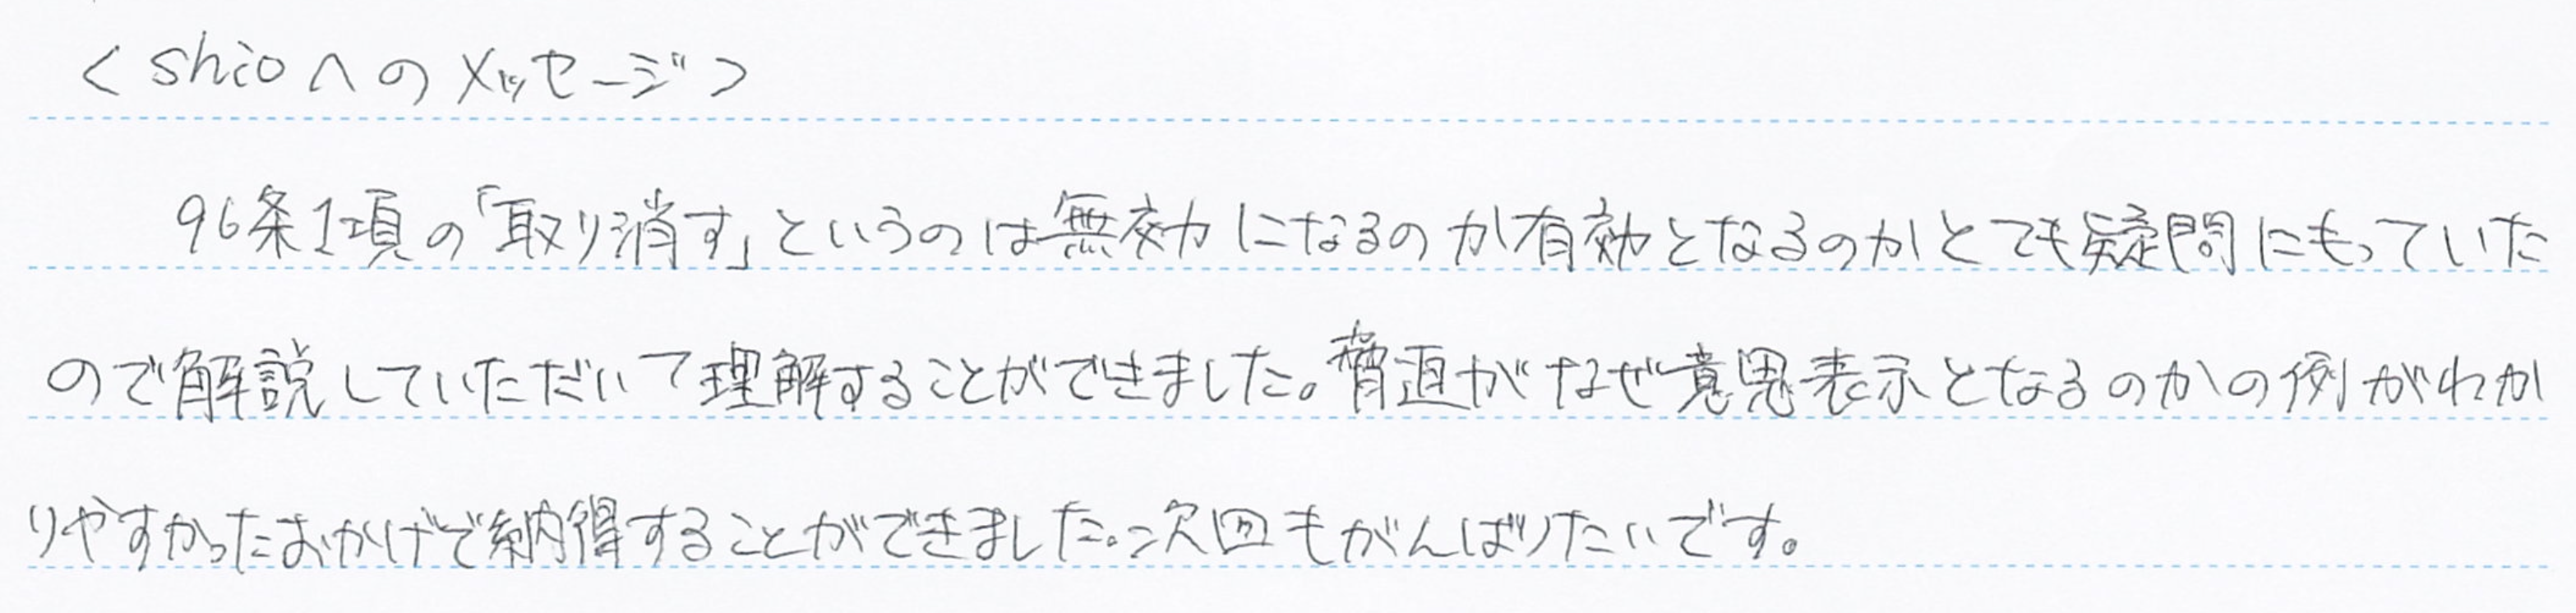 <shioへのメッセージ>
96条1項の「取り消す」というのは無効力になるのか有効となるのかとても疑問にもっていた
ので解説していただいて理解することができました。脅迫がなぜ意思表示となるのかの例がわか
りやすかったおかげで納得することができました。次回もがんばりたいです。